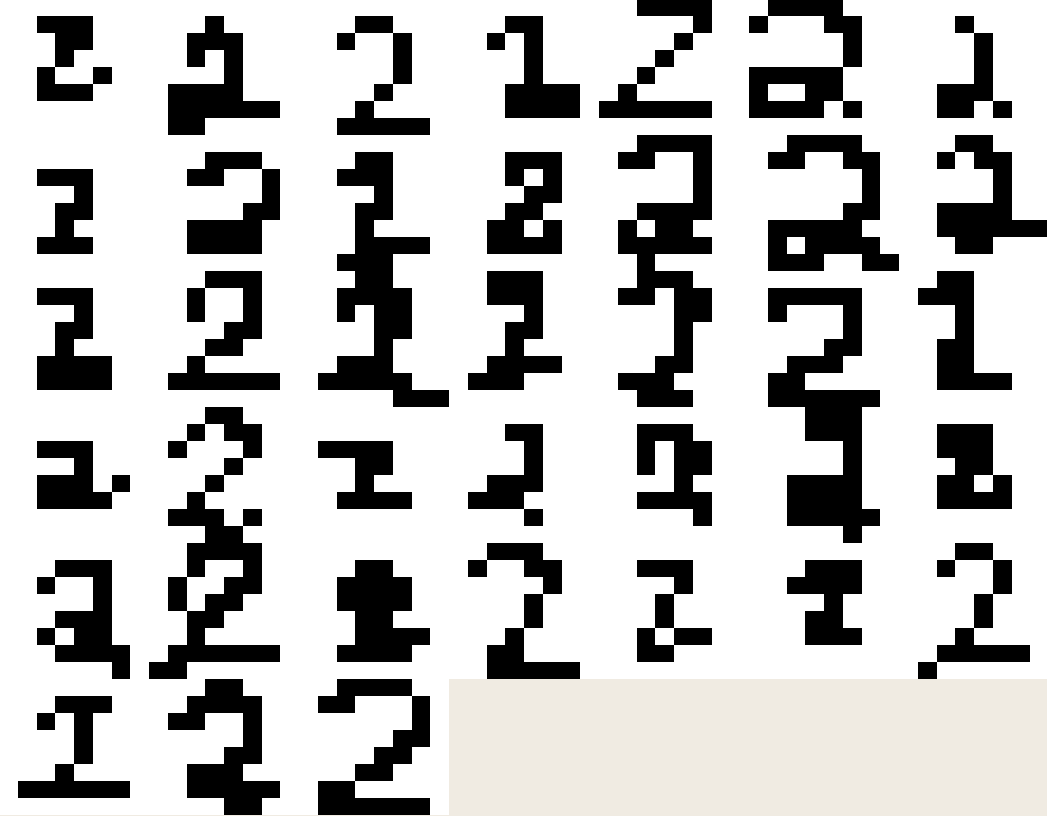 2 2 2 2 2 2 2
2 2 2 2 2 2 2
2 2 2 2 2 2 2
2 2 2 2 2 2 2
2 2 2 2 2 2 2
2 2 2